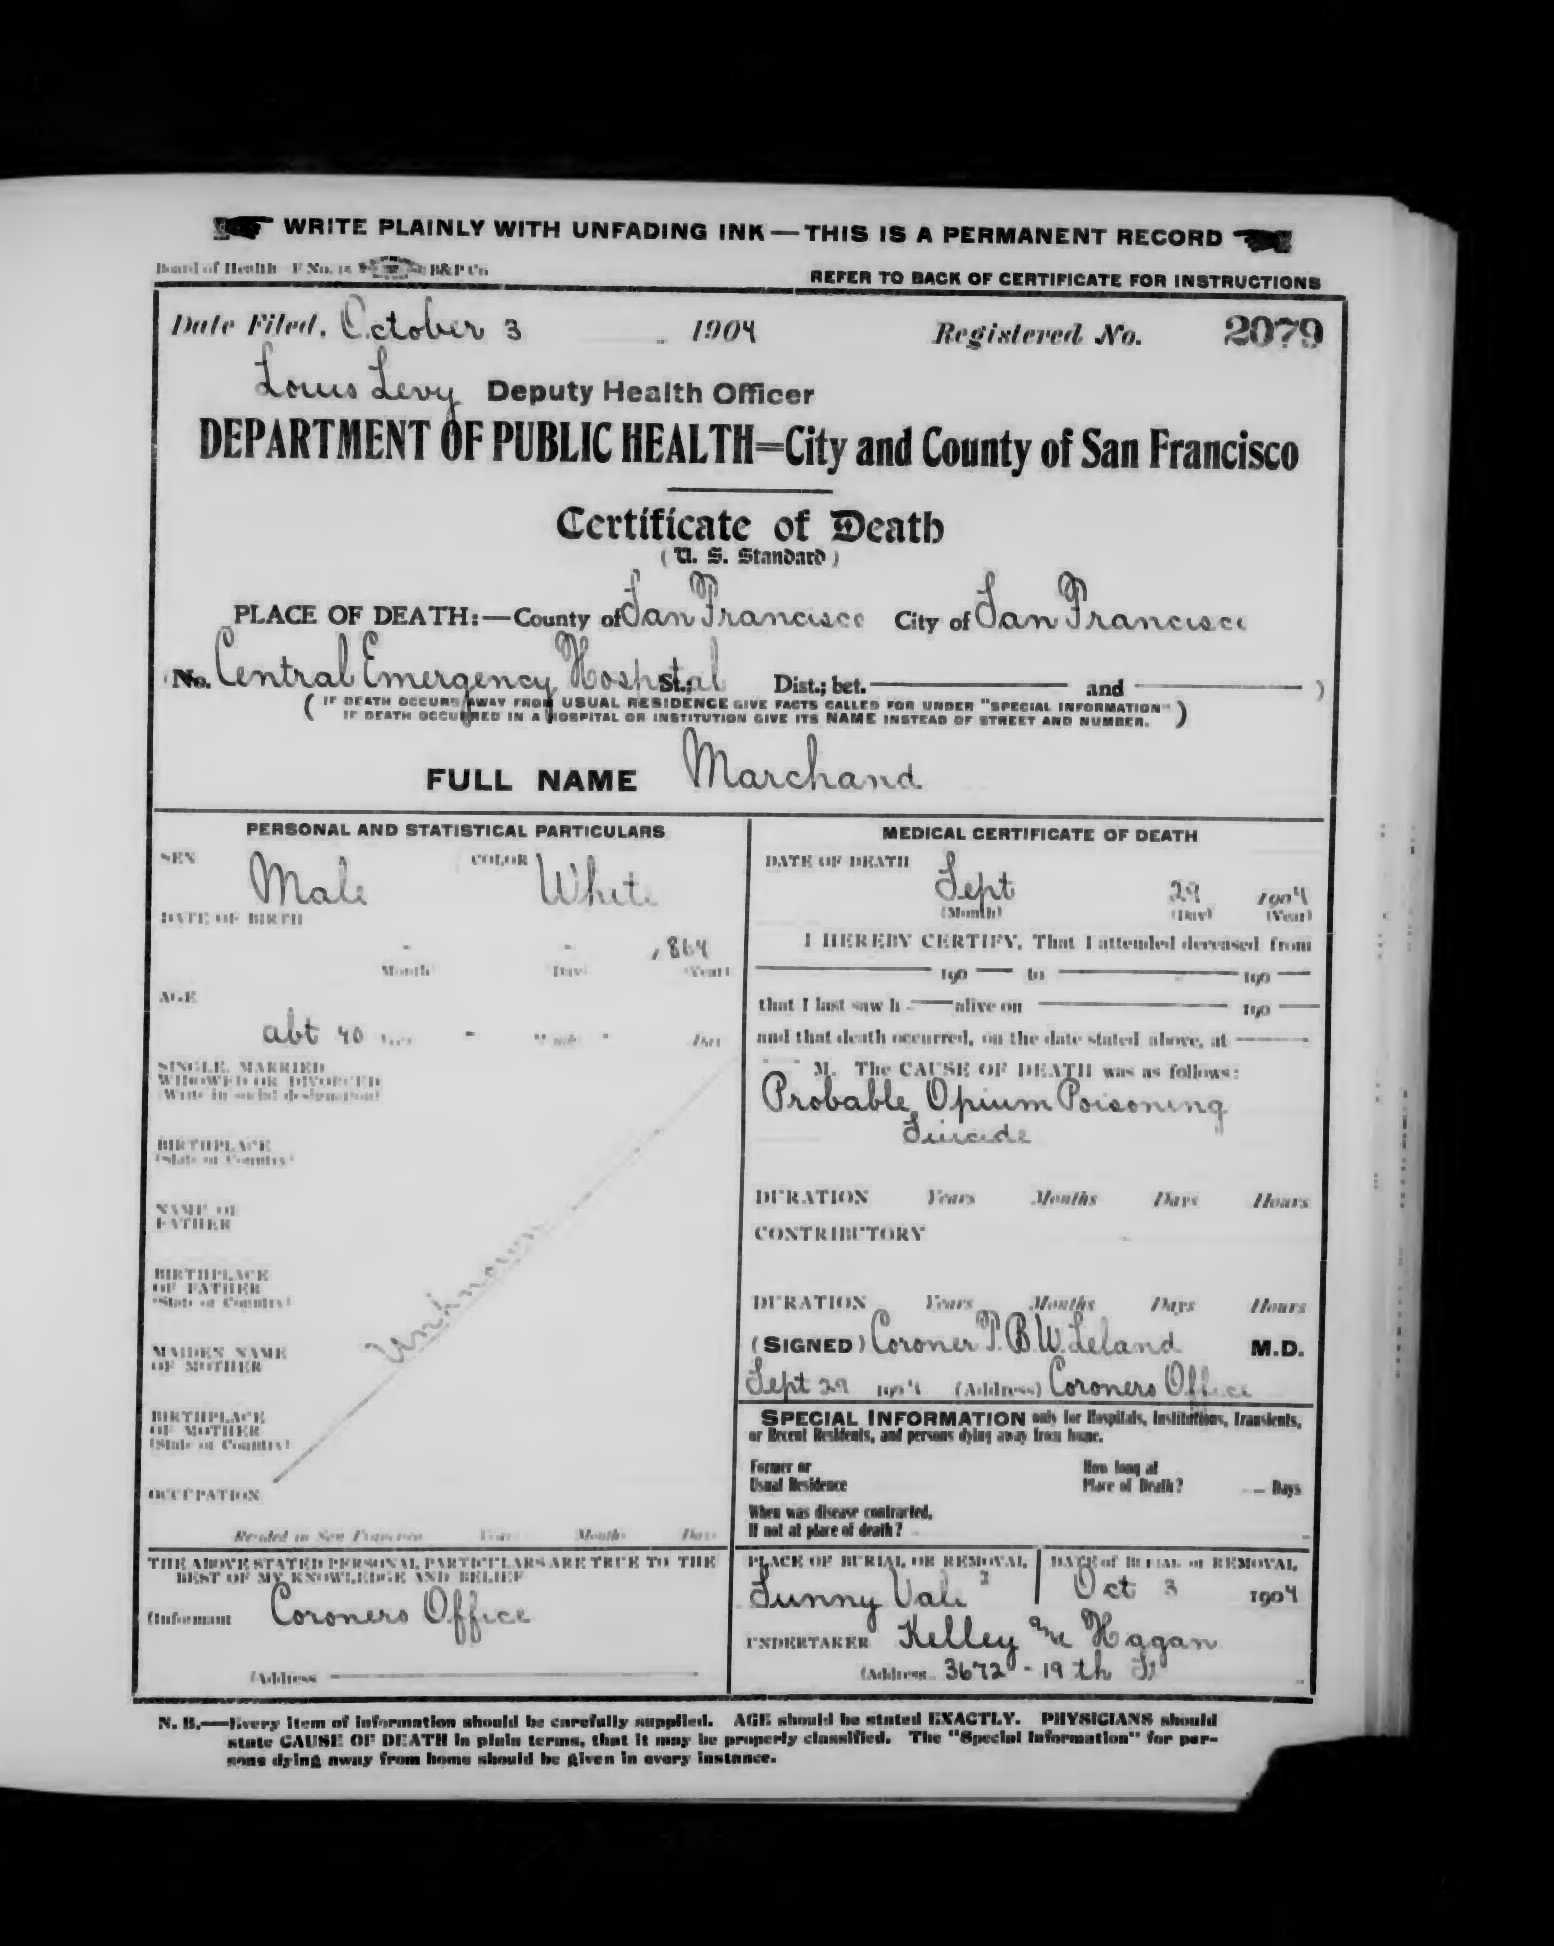 WRITE PLAINLY WITH UNFADING INK — THIS IS A PERMANENT RECORD
Board of Health F No. 15 B&P Co
REFER TO BACK OF CERTIFICATE FOR INSTRUCTIONS
Date Filed, October 3 1904 Registered No. 2079
Louis Levy Deputy Health Officer
DEPARTMENT OF PUBLIC HEALTH=City and County of San Francisco
Certificate of Death
( U. S. Standard )
PLACE OF DEATH:—County of San Francisco City of San Francisco
(No. Central Emergency Hospital St.; Dist.; bet. and )
( IF DEATH OCCURS AWAY FROM USUAL RESIDENCE GIVE FACTS CALLED FOR UNDER "SPECIAL INFORMATION"
IF DEATH OCCURRED IN A HOSPITAL OR INSTITUTION GIVE ITS NAME INSTEAD OF STREET AND NUMBER. )
FULL NAME Marchand
PERSONAL AND STATISTICAL PARTICULARS
SEX Male COLOR White
DATE OF BIRTH
- - 1864
Month Day (Year)
AGE
abt 40 Years - Months - Days
SINGLE, MARRIED
WIDOWED OR DIVORCED
(Write in social designation)
BIRTHPLACE
(State or Country)
NAME OF
FATHER
BIRTHPLACE
OF FATHER
(State or Country)
Unknown
MAIDEN NAME
OF MOTHER
BIRTHPLACE
OF MOTHER
(State or Country)
OCCUPATION
Resided in San Francisco Years Months Days
THE ABOVE STATED PERSONAL PARTICULARS ARE TRUE TO THE
BEST OF MY KNOWLEDGE AND BELIEF
(Informant Coroners Office
(Address
MEDICAL CERTIFICATE OF DEATH
DATE OF DEATH
Sept 29 1904
(Month) (Day) (Year)
I HEREBY CERTIFY, That I attended deceased from
190 to 190
that I last saw h alive on 190
and that death occurred, on the date stated above, at
M. The CAUSE OF DEATH was as follows:
Probable Opium Poisoning
Suicide
DURATION Years Months Days Hours
CONTRIBUTORY
DURATION Years Months Days Hours
(SIGNED) Coroner T. B. W. Leland M.D.
Sept 29 1904 (Address) Coroners Office
SPECIAL INFORMATION only for Hospitals, Institutions, Transients,
or Recent Residents, and persons dying away from home.
Former or
Usual Residence
How long at
Place of Death? Days
When was disease contracted,
If not at place of death?
PLACE OF BURIAL OR REMOVAL DATE of BURIAL or REMOVAL
Sunny Vale Oct 3 1904
UNDERTAKER Kelley and Hagan
(Address 3672 - 19th St
N. B.—Every item of information should be carefully supplied. AGE should be stated EXACTLY. PHYSICIANS should
state CAUSE OF DEATH in plain terms, that it may be properly classified. The "Special Information" for per-
sons dying away from home should be given in every instance.